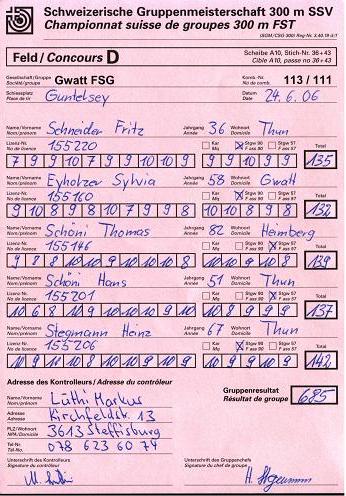 Schweizerische Gruppenmeisterschaft 300 m SSV
Championnat suisse de groupes 300 m FST
Feld / Concours D
Scheibe A10, Stich-Nr. 36+43
Cible A10, passe no 36+43
Gesellschaft/Gruppe
Société/groupe
Gwatt FSG
Komb.-Nr.
No de comb.
113 / 111
Schiessplatz
Place de tir
Guntelsey
Datum
Date
24.6.06
Name/Vorname
Nom/prénom
Schneider Fritz
Jahrgang
Année
36
Wohnort
Domicile
Thun
Lizenz-Nr.
No de licence
155220
Kar
Mq
Stgw 90
F ass 90
Stgw 57
F ass 57
Total
7 9 9 10 7 9 9 10 10 9 9 9 10 9 9 135
Name/Vorname
Nom/prénom
Eyholzer Sylvia
Jahrgang
Année
58
Wohnort
Domicile
Gwatt
Lizenz-Nr.
No de licence
155160
Kar
Mq
Stgw 90
F ass 90
Stgw 57
F ass 57
Total
9 10 8 9 8 10 7 9 9 8 10 10 8 8 9 132
Name/Vorname
Nom/prénom
Schöni Thomas
Jahrgang
Année
82
Wohnort
Domicile
Heimberg
Lizenz-Nr.
No de licence
155146
Kar
Mq
Stgw 90
F ass 90
Stgw 57
F ass 57
Total
139
Name/Vorname
Nom/prénom
Schöni Hans
Jahrgang
Année
51
Wohnort
Domicile
Thun
Lizenz-Nr.
No de licence
155201
Kar
Mq
Stgw 90
F ass 90
Stgw 57
F ass 57
Total
137
Name/Vorname
Nom/prénom
Stegmann Heinz
Jahrgang
Année
67
Wohnort
Domicile
Thun
Lizenz-Nr.
No de licence
155206
Kar
Mq
Stgw 90
F ass 90
Stgw 57
F ass 57
Total
142
Adresse des Kontrolleurs / Adresse du contrôleur
Gruppenresultat
Résultat de groupe
685
Name/Vorname
Nom/prénom
Lüthi Markus
Adresse
Adresse
Kirchfeldstr. 13
PLZ/Wohnort
NPA/Domicile
3613 Steffisburg
Tel-Nr.
Tel-No
078 623 60 74
Unterschrift des Kontrolleurs
Signature du contrôleur
Unterschrift des Gruppenchefs
Signature du chef de groupe